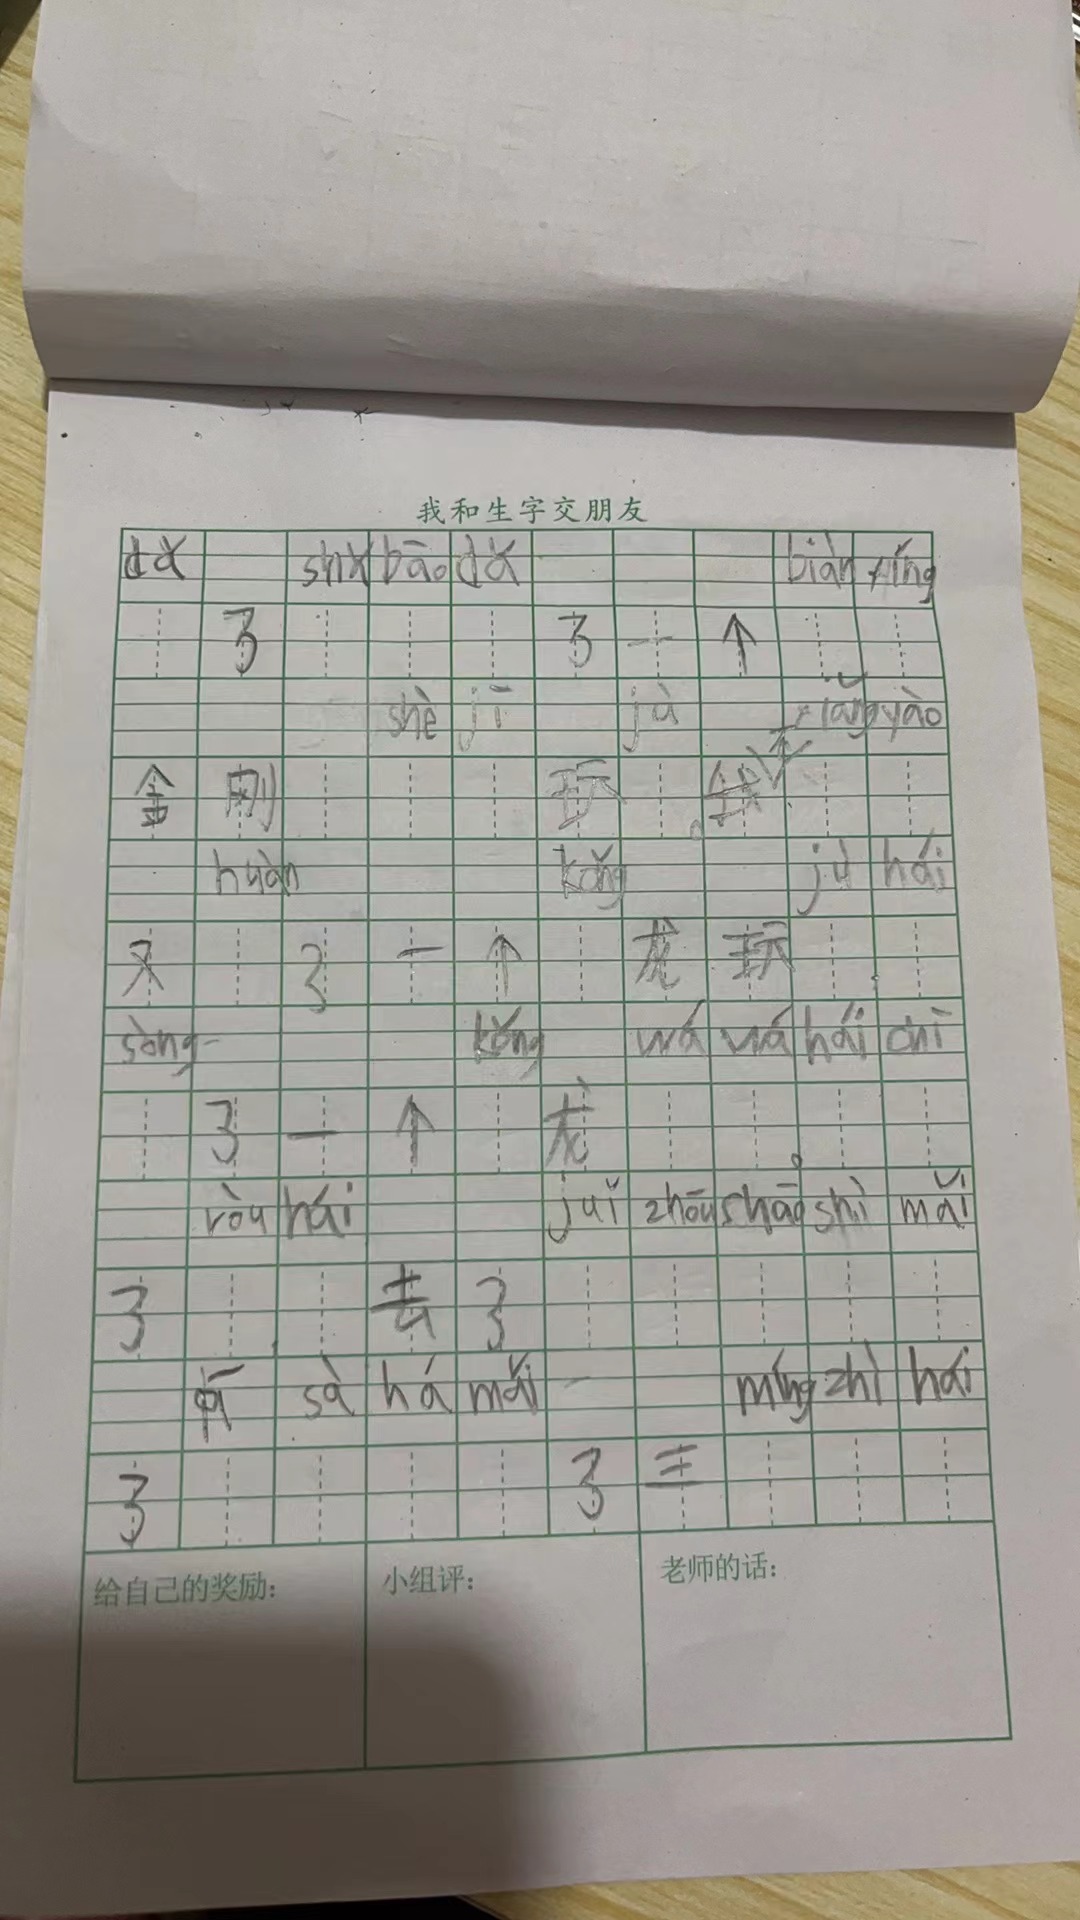 我和生字交朋友
dǎ shǔ bāo dǎ biàn xíng
了 了 一 个
shè jī jù jiǎng yào
金 刚 玩 。 钱
huàn kǒng jù hái
又 了 一 个 龙 玩 ,
sòng kǒng wá wá hái chī
了 一 个 龙 。
ròu hái juǐ zhōu shāo shì mǎi
了 , 去 了
pī sà há mǎi míng zhì hái
了 了 三
给自己的奖励:
小组评:
老师的话: